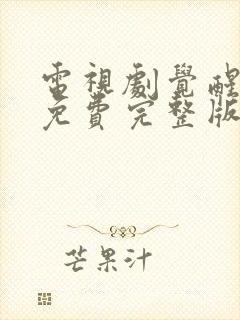 電視劇覺醒
免費完整版
芒果汁